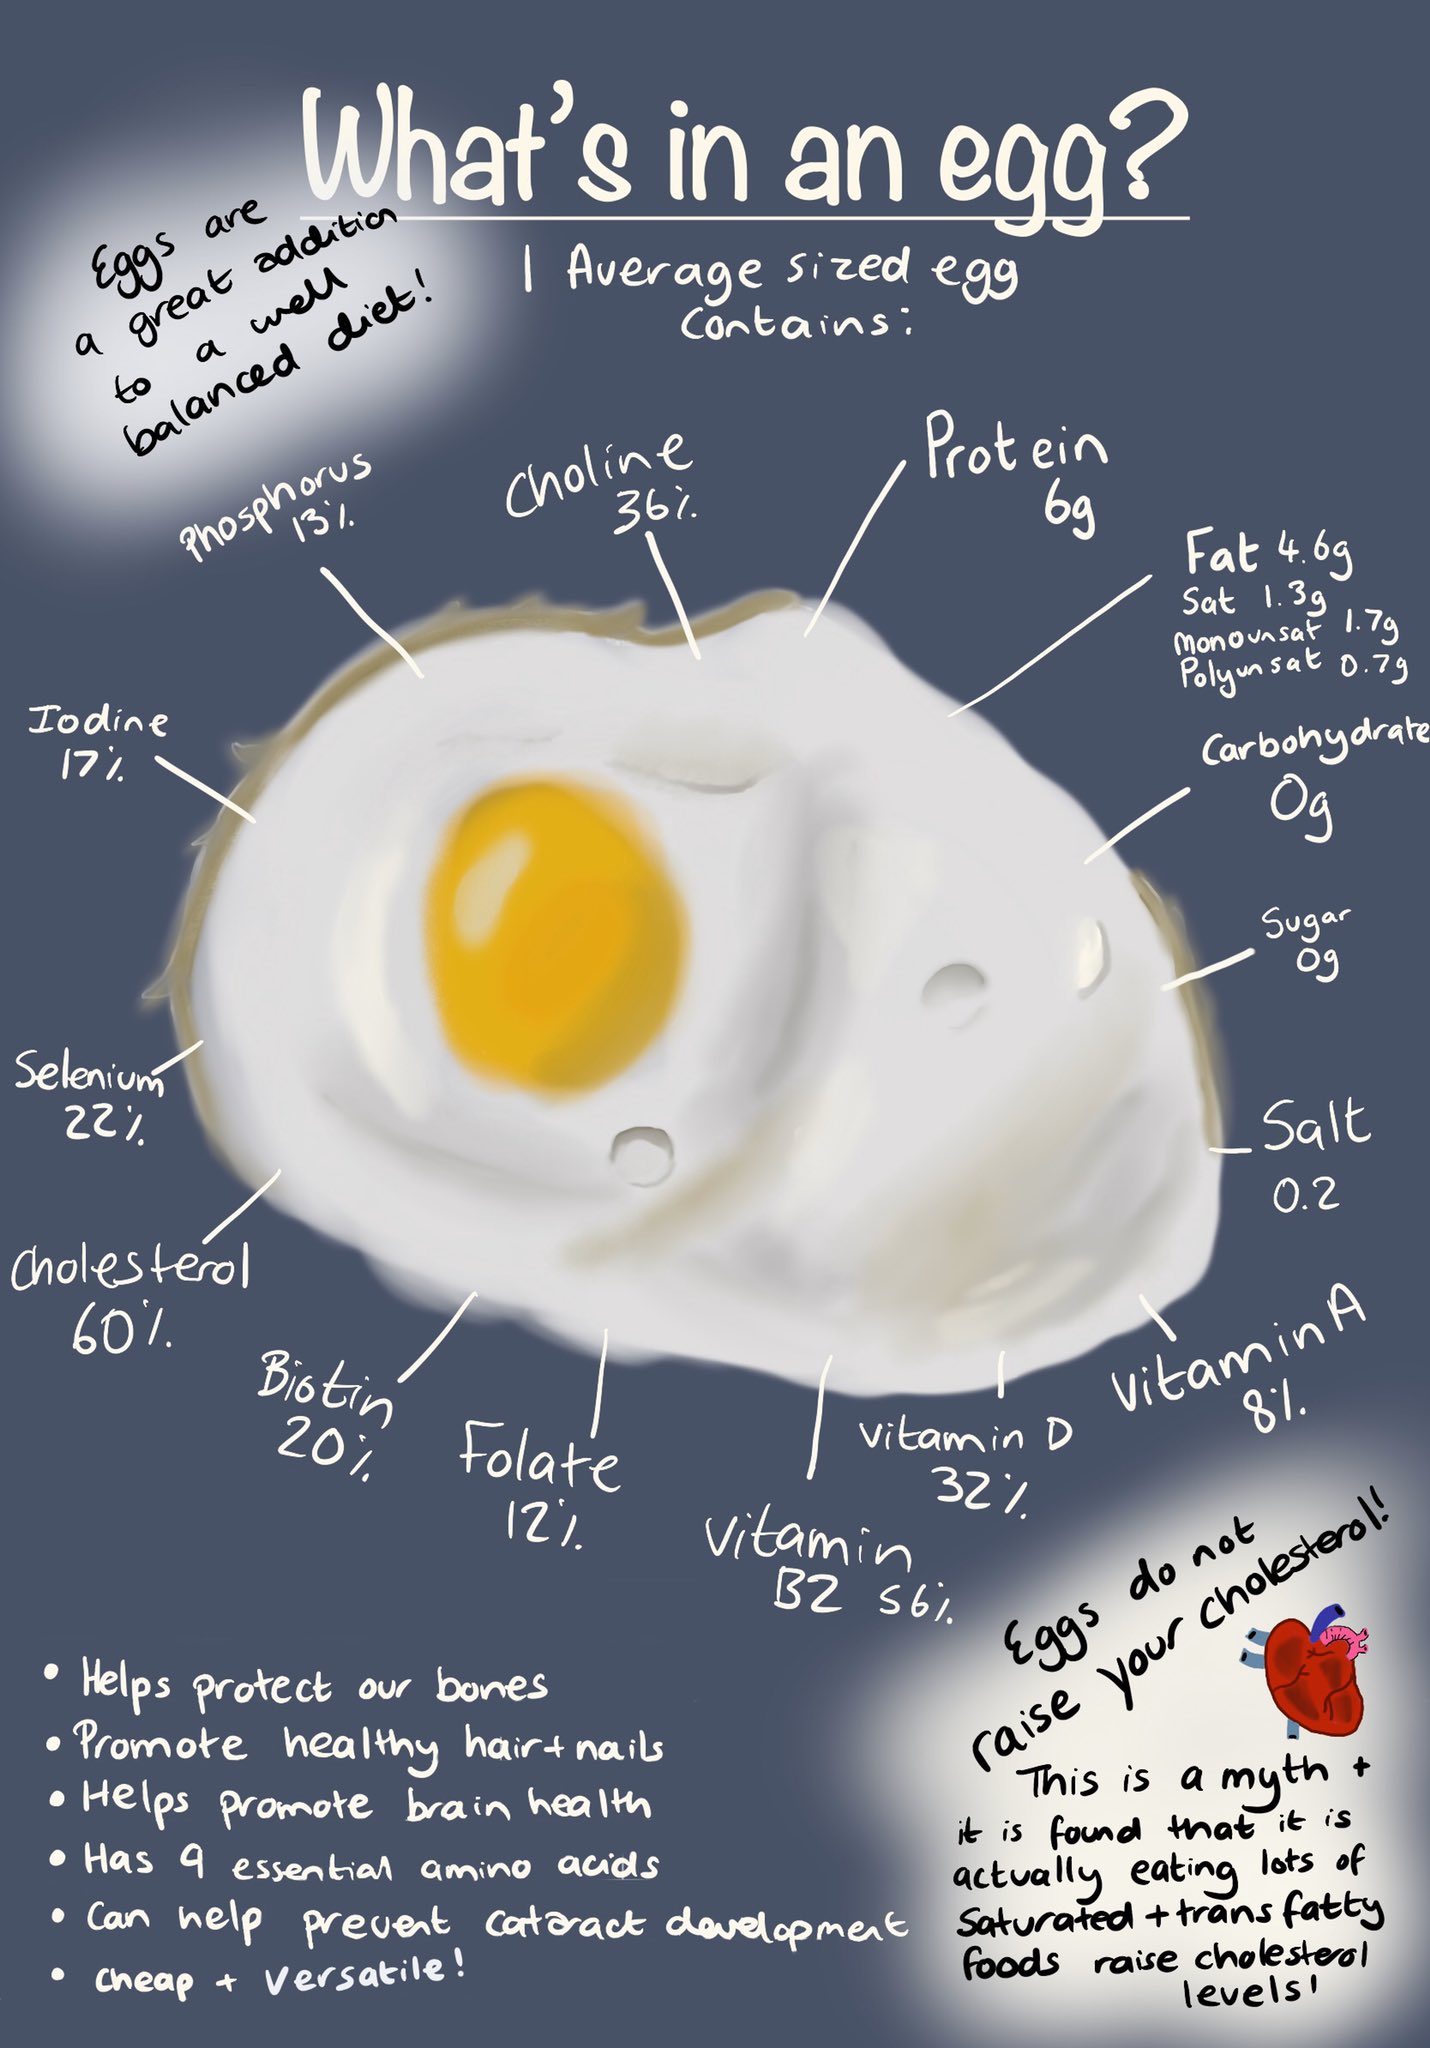 What's in an egg?
Eggs are
a great addition
to a well
balanced diet!
1 Average sized egg
contains:
Phosphorus
13%
Choline
36%
Protein
6g
Fat 4.6g
Sat 1.3g
Monounsat 1.7g
Polyunsat 0.7g
Iodine
17%
Carbohydrate
0g
Sugar
0g
Selenium
22%
Salt
0.2
Cholesterol
60%
Biotin
20%
Folate
12%
Vitamin
B2 56%
Vitamin D
32%
Vitamin A
8%
• Helps protect our bones
• Promote healthy hair + nails
• Helps promote brain health
• Has 9 essential amino acids
• Can help prevent cataract development
• Cheap + Versatile!
Eggs do not
raise your cholesterol!
This is a myth +
it is found that it is
actually eating lots of
Saturated + trans fatty
foods raise cholesterol
levels!